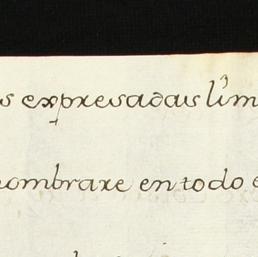 s expresadas lim
nombrare en todo e